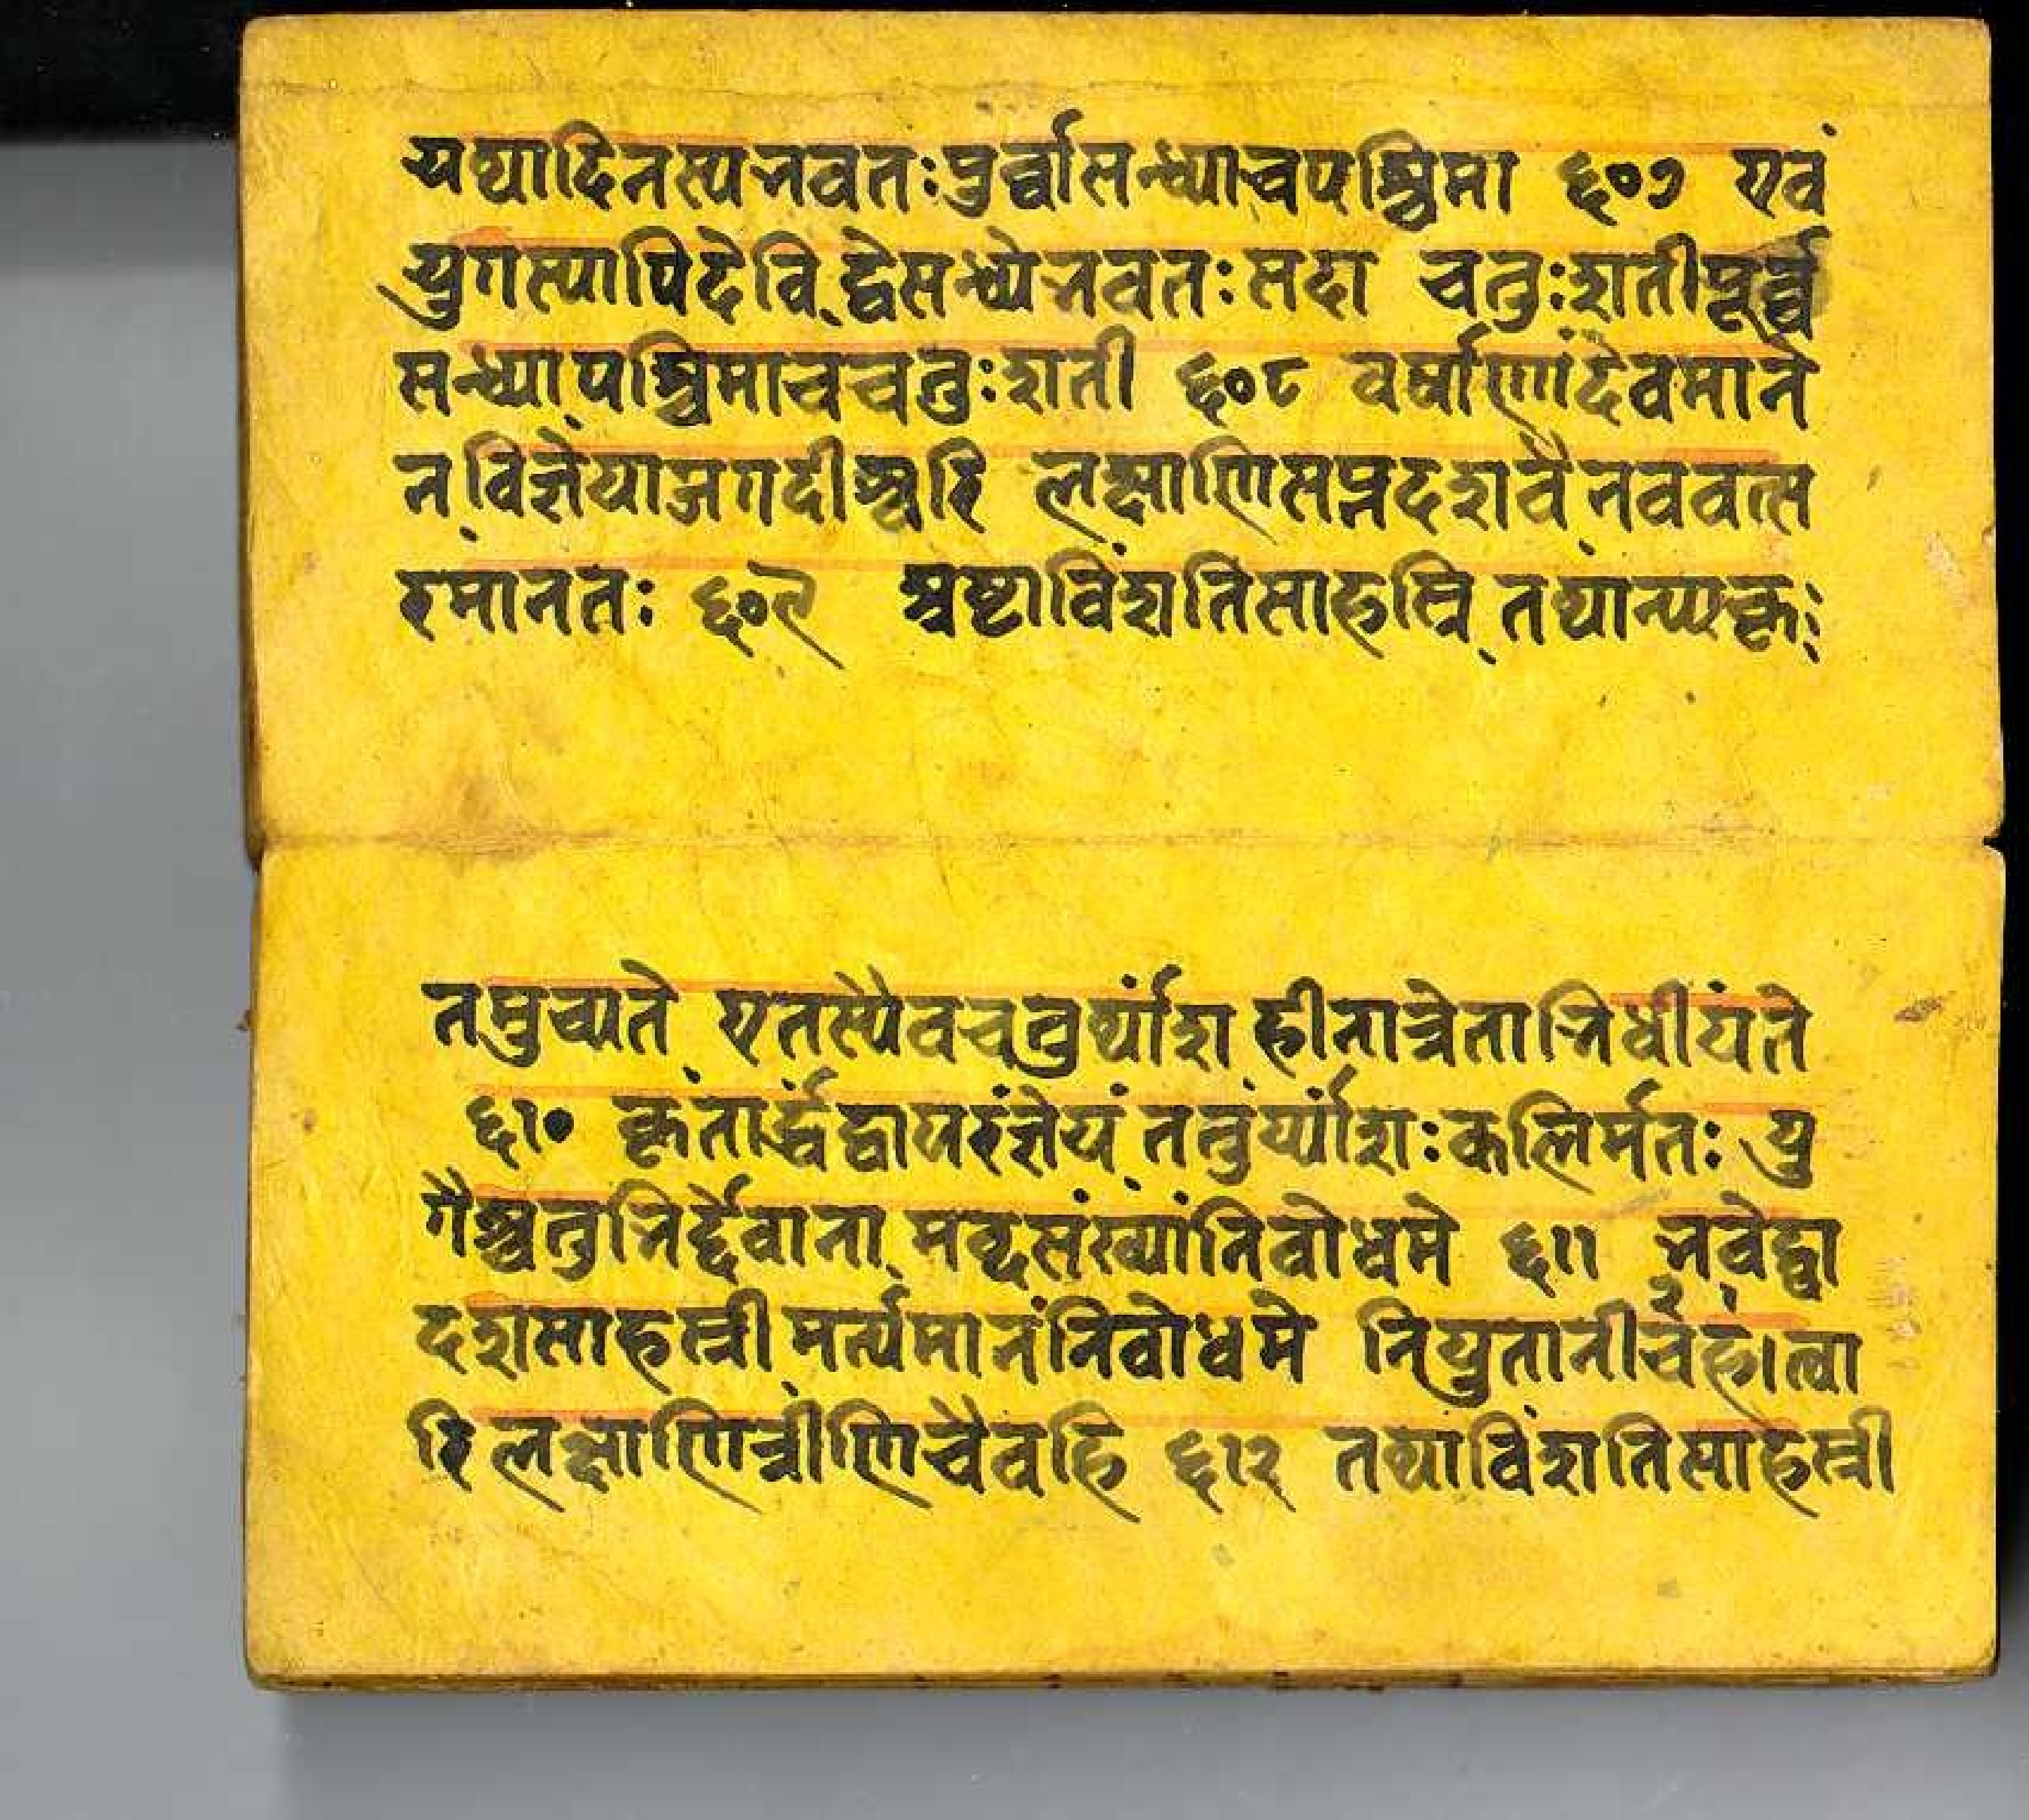 यथादिनस्यभवतःपुर्व्वासन्ध्याचपश्चिमा ६०७ एवं
युगस्यापिदेवि द्वेसन्ध्येभवतःसदा चतुःशतीपूर्व्व
सन्ध्या पश्चिमाचचतुःशती ६०८ वर्षाणांदेवमाने
न विज्ञेयाजगदीश्वरि लक्षाणिसप्तदशवैनववत्स
रमानतः ६०९ अष्टाविंशतिसाहस्रि तथान्यएकृ
तमुच्यते एतस्यैवचतुर्थांश हीनात्रेताभिधीयते
६१० कृतार्द्धंद्वापरंज्ञेयं ततुर्थ्यांशःकलिर्मतः यु
गैश्चतुर्भिर्द्देवाना मब्दसंख्यांनिबोधमे ६११ भवेद्द्वा
दशसाहस्री मर्त्यमानंनिबोधमे नियुतानीचहत्वा
रि लक्षाणित्रीणिचैवहि ६१२ तथाविंशतिसाहस्री